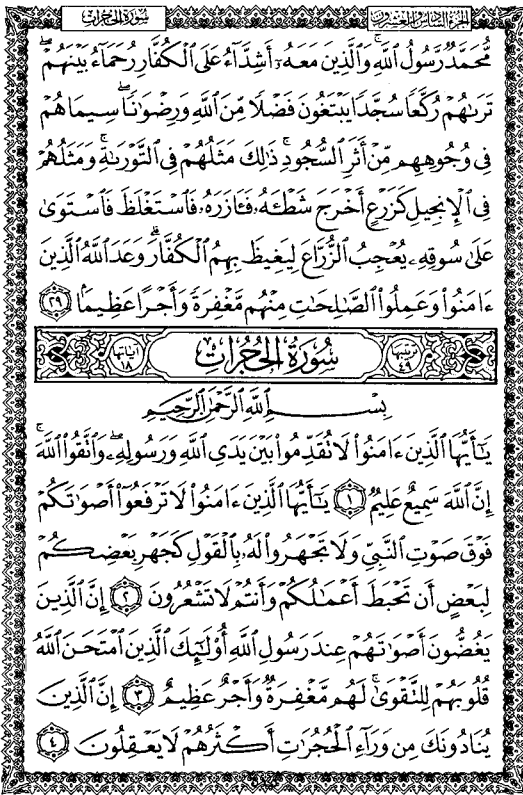 سُورَةُ الحُجُرَاتِ الجُزءُ السَّادِسُ وَالعِشْرُونَ
مُّحَمَّدٌ رَّسُولُ ٱللَّهِ ۚ وَٱلَّذِينَ مَعَهُۥٓ أَشِدَّآءُ عَلَى ٱلْكُفَّارِ رُحَمَآءُ بَيْنَهُمْ ۖ
تَرَىٰهُمْ رُكَّعًا سُجَّدًا يَبْتَغُونَ فَضْلًا مِّنَ ٱللَّهِ وَرِضْوَٰنًا ۖ سِيمَاهُمْ
فِى وُجُوهِهِم مِّنْ أَثَرِ ٱلسُّجُودِ ۚ ذَٰلِكَ مَثَلُهُمْ فِى ٱلتَّوْرَىٰةِ ۚ وَمَثَلُهُمْ
فِى ٱلْإِنجِيلِ كَزَرْعٍ أَخْرَجَ شَطْـَٔهُۥ فَـَٔازَرَهُۥ فَٱسْتَغْلَظَ فَٱسْتَوَىٰ
عَلَىٰ سُوقِهِۦ يُعْجِبُ ٱلزُّرَّاعَ لِيَغِيظَ بِهِمُ ٱلْكُفَّارَ ۗ وَعَدَ ٱللَّهُ ٱلَّذِينَ
ءَامَنُوا۟ وَعَمِلُوا۟ ٱلصَّٰلِحَٰتِ مِنْهُم مَّغْفِرَةً وَأَجْرًا عَظِيمًۢا ٢٩
ترتيبها ٤٩ سُورَةُ الحُجُرَاتِ آياتها ١٨
بِسْمِ ٱللَّهِ ٱلرَّحْمَٰنِ ٱلرَّحِيمِ
يَٰٓأَيُّهَا ٱلَّذِينَ ءَامَنُوا۟ لَا تُقَدِّمُوا۟ بَيْنَ يَدَىِ ٱللَّهِ وَرَسُولِهِۦ ۖ وَٱتَّقُوا۟ ٱللَّهَ ۚ
إِنَّ ٱللَّهَ سَمِيعٌ عَلِيمٌ ١ يَٰٓأَيُّهَا ٱلَّذِينَ ءَامَنُوا۟ لَا تَرْفَعُوٓا۟ أَصْوَٰتَكُمْ
فَوْقَ صَوْتِ ٱلنَّبِىِّ وَلَا تَجْهَرُوا۟ لَهُۥ بِٱلْقَوْلِ كَجَهْرِ بَعْضِكُمْ
لِبَعْضٍ أَن تَحْبَطَ أَعْمَٰلُكُمْ وَأَنتُمْ لَا تَشْعُرُونَ ٢ إِنَّ ٱلَّذِينَ
يَغُضُّونَ أَصْوَٰتَهُمْ عِندَ رَسُولِ ٱللَّهِ أُو۟لَٰٓئِكَ ٱلَّذِينَ ٱمْتَحَنَ ٱللَّهُ
قُلُوبَهُمْ لِلتَّقْوَىٰ ۚ لَهُم مَّغْفِرَةٌ وَأَجْرٌ عَظِيمٌ ٣ إِنَّ ٱلَّذِينَ
يُنَادُونَكَ مِن وَرَآءِ ٱلْحُجُرَٰتِ أَكْثَرُهُمْ لَا يَعْقِلُونَ ٤